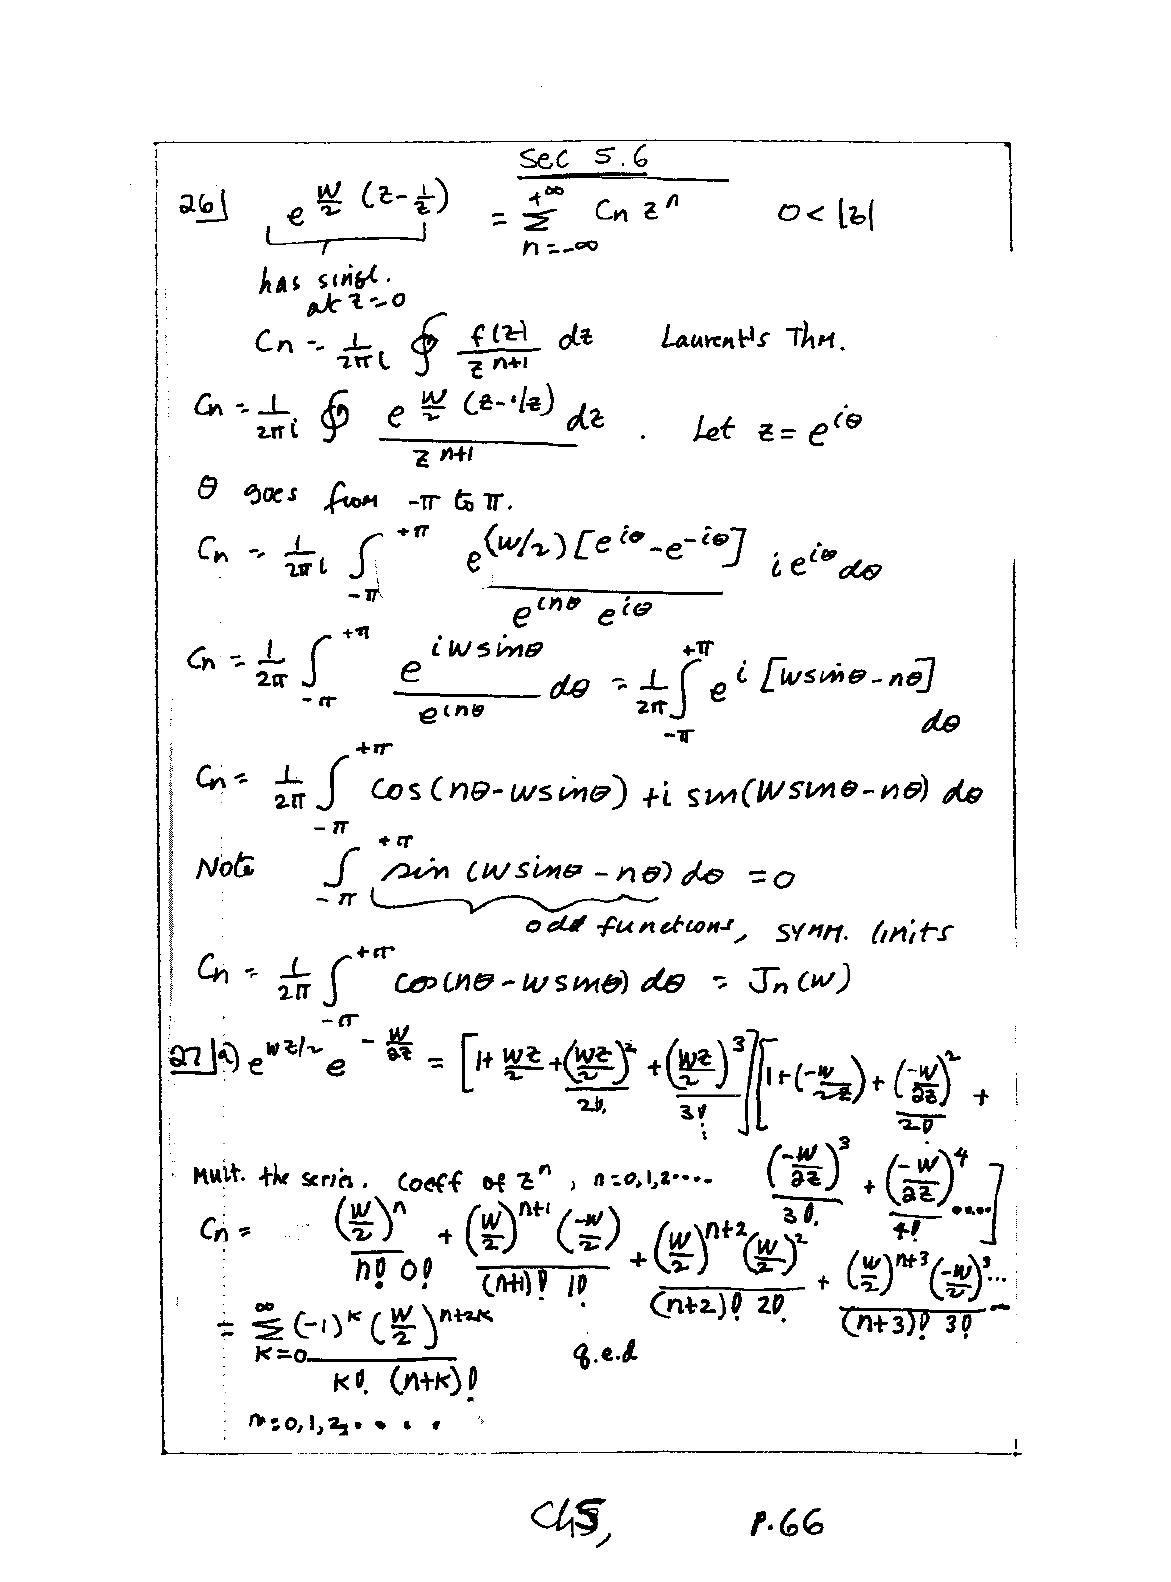 Sec 5.6
26] e^{w/2 (z-1/z)} = Σ_{n=-∞}^{+∞} Cn z^n    0<|z|
has singl.
at z=0
Cn = 1/(2πi) ∮ f(z)/z^{n+1} dz    Laurent's Thm.
Cn = 1/(2πi) ∮ e^{w/2 (z-1/z)}/z^{n+1} dz . Let z=e^{iθ}
θ goes from -π to π.
Cn = 1/(2πi) ∫_{-π}^{+π} e^{(w/2)[e^{iθ}-e^{-iθ}]}/(e^{inθ} e^{iθ}) i e^{iθ} dθ
Cn = 1/(2π) ∫_{-π}^{+π} e^{iw sinθ}/e^{inθ} dθ = 1/(2π) ∫_{-π}^{+π} e^{i[w sinθ-nθ]} dθ
Cn = 1/(2π) ∫_{-π}^{+π} cos(nθ-w sinθ) +i sin(w sinθ-nθ) dθ
Note ∫_{-π}^{+π} sin(w sinθ-nθ) dθ =0
odd functions, symm. limits
Cn = 1/(2π) ∫_{-π}^{+π} cos(nθ-w sinθ) dθ = Jn(w)
27] a) e^{wz/2} e^{-w/2z} = [1+ wz/2 + (wz/2)^2/2! + (wz/2)^3/3! ...][1+(-w/2z)+ (-w/2z)^2/2! +
(-w/2z)^3/3! + (-w/2z)^4/4! ....]
Mult. the series. Coeff of z^n, n=0,1,2....
Cn = (w/2)^n/(n! 0!) + (w/2)^{n+1}(-w/2)/((n+1)! 1!) + (w/2)^{n+2}(w/2)^2/((n+2)! 2!) + (w/2)^{n+3}(-w/2)^3/((n+3)! 3!) ...
= Σ_{k=0}^{∞} (-1)^k (w/2)^{n+2k}/(k! (n+k)!)    q.e.d
n=0,1,2,....
Ch5,    p.66